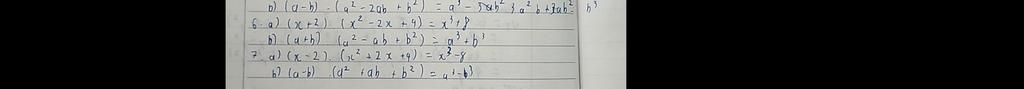 b) (a-b) · (a² - 2ab + b²) = a³ - 3ab² 3 a² b + 3ab² - b³
6. a) (x+2) (x² - 2x + 4) = x³ + 8
b) (a+b) (a² - ab + b²) = a³ + b³
7. a) (x-2) · (x² + 2x + 4) = x³ - 8
b) (a-b) · (a² + ab + b²) = a³ - b³